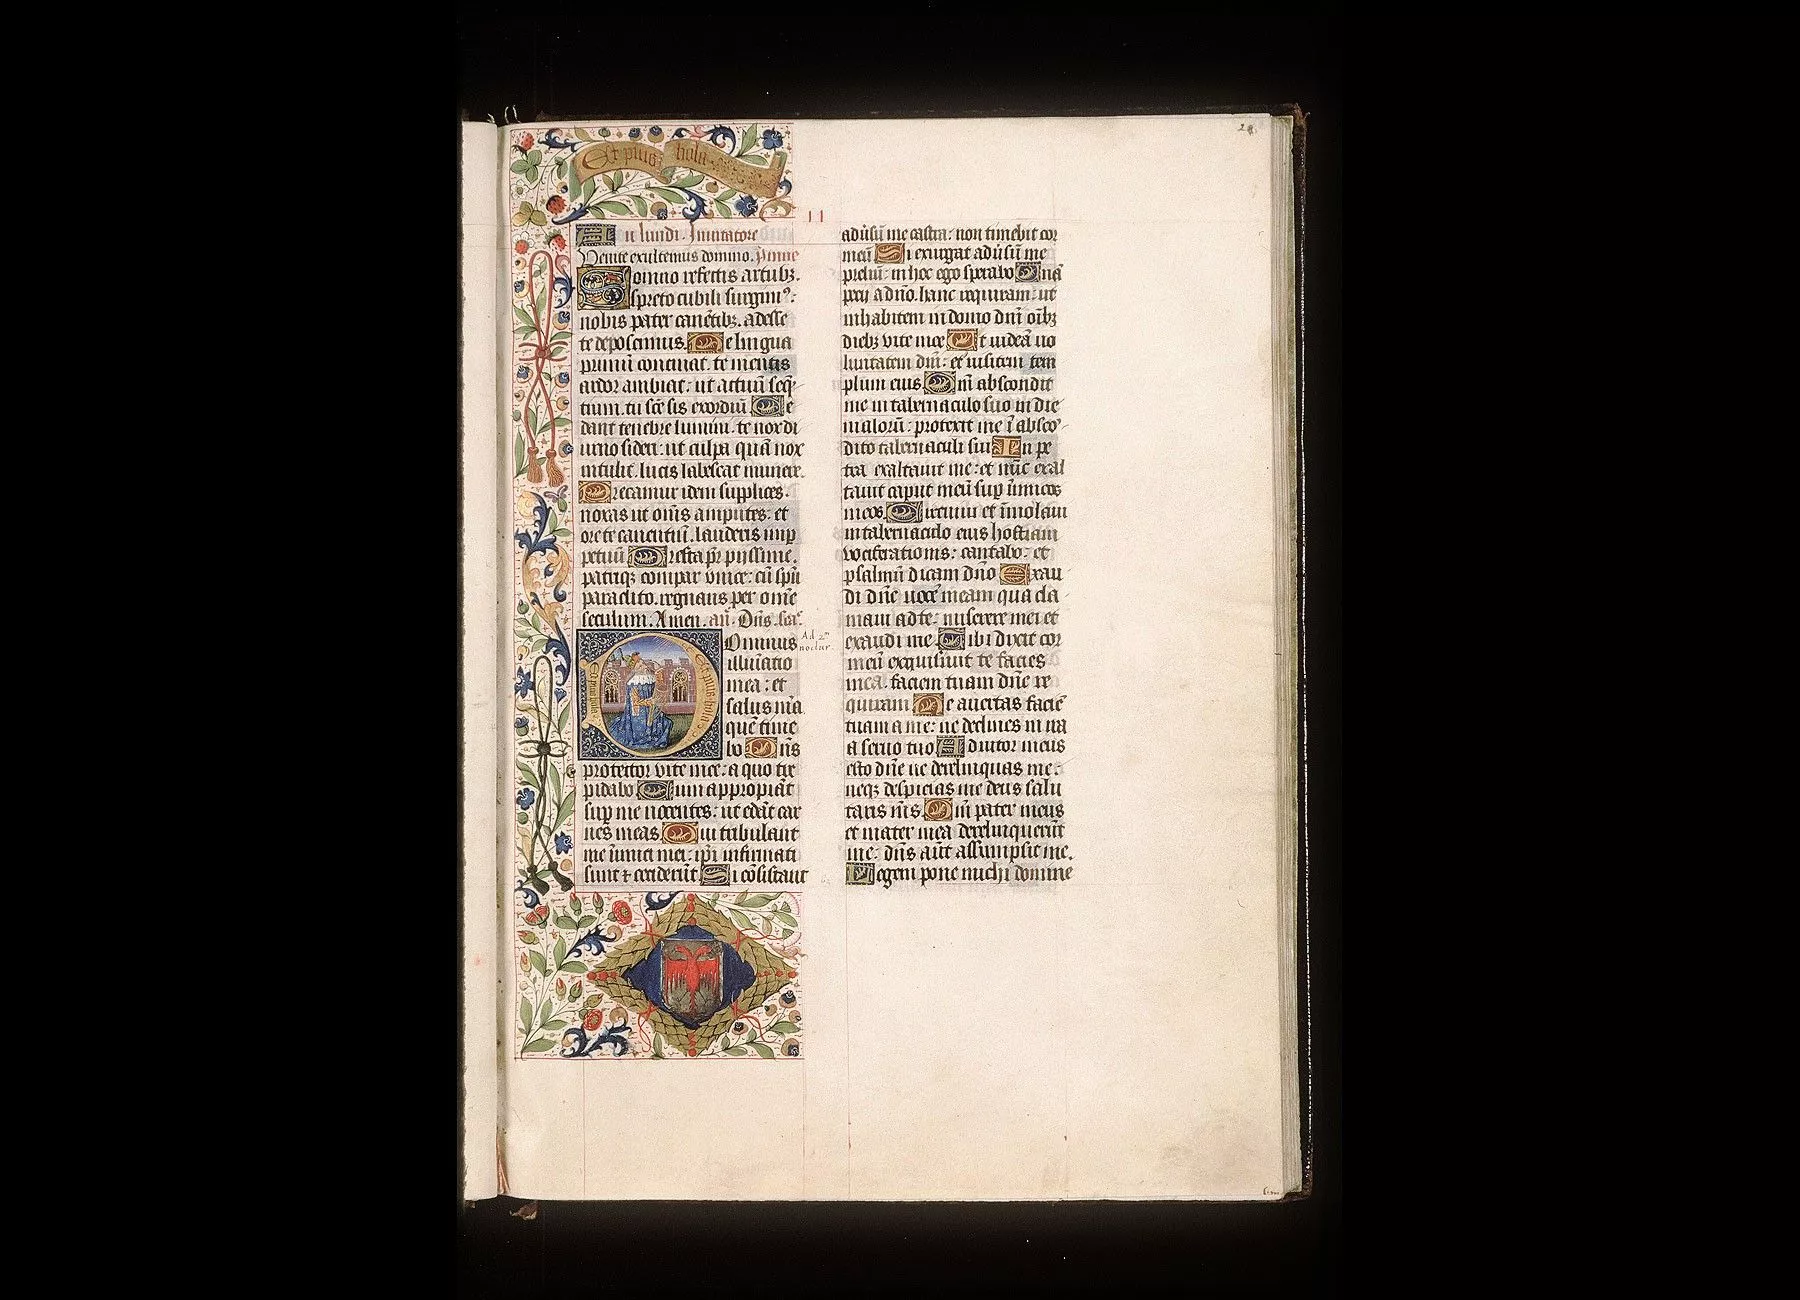 Et plus hola
28
11
Feria secundi. Invitatore
Venite exultemus domino. Hymne
Somno refectis artubz.
spreto cubili surgimꝰ:
nobis pater canētibz. adesse
te deposcimus. Te lingua
primū concinat. te mentis
ardor ambiat: ut actuū seq̄
tium. tu sc̄e sis exordiū Ce
dant tenebre lumini. te nox di
urno sideri: ut culpa quā nox
intulit. lucis labescat munere.
Precamur idem supplices.
noxas ut om̄s amputes: et
ore te canentiū. lauderis in ꝑ
petuū Presta pr̄ piissime.
patriqꝫ compar unice: cū sp̄u
paraclito. regnans per om̄e
seculum. Amen. an̄. Dn̄s.
Dominus
illuīatio
mea: et
salus m̄a
quē time
bo Dn̄s
protector vite mee: a quo tre
pidabo Dum appropiāt
suꝑ me nocentes: ut edāt car
nes meas. Qui tribulant
me īimici mei: ip̄i infirmati
sunt ⁊ ceciderūt Si cōsistant
Ad 2m
noctur.
Et plus hola
Et plus hola
adūsū me castra: non timebit cor
meū Si exurgat adūsū me
preliū: in hoc ego sperabo Unā
pecii a dn̄o. hanc requiram: ut
inhabitem in domo dn̄i oībz
diebz vite mee Ut videā vo
luntatem dn̄i: et visitem tem
plum eius Qm̄ abscondit
me in tabernaculo suo in die
malorū: protexit me ī absco
dito tabernaculi sui In pe
tra exaltavit me: et nūc exal
tavit caput meū suꝑ īimicos
meos. Circuivi et īmolavi
in tabernaculo eius hostiam
vociferationis: cantabo: et
psalmū dicam dn̄o Exau
di dn̄e vocē meam qua cla
mavi ad te: miserere mei et
exaudi me. Tibi dixit cor
meū exquisivit te facies
mea. faciem tuam dn̄e re
quiram Ne avertas faciē
tuam a me: ne declines in ira
a servo tuo Adiutor meus
esto dn̄e ne derelinquas me:
neqꝫ despicias me deus salu
taris m̄s. Qm̄ pater meus
et mater mea derelinquerūt
me: dn̄s aūt assumpsit me.
Legem pone michi domine